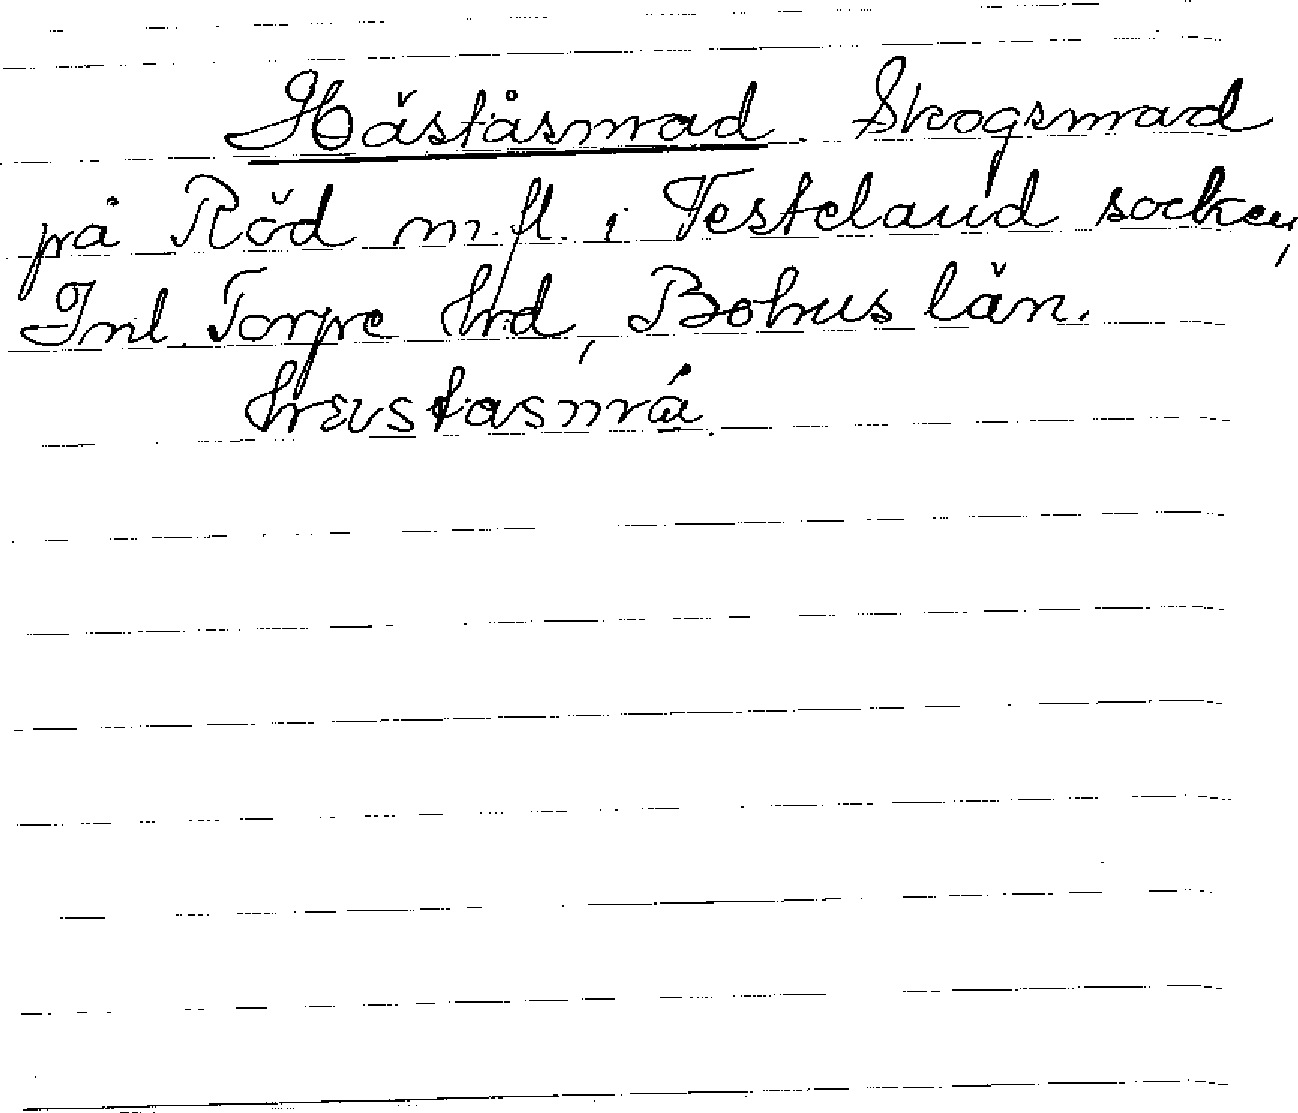 Häståsmad. Skogsmad
på Röd m.fl. i Resteland socken,
Inl. Torpe hrd, Bohus län.
hæstasmrá.